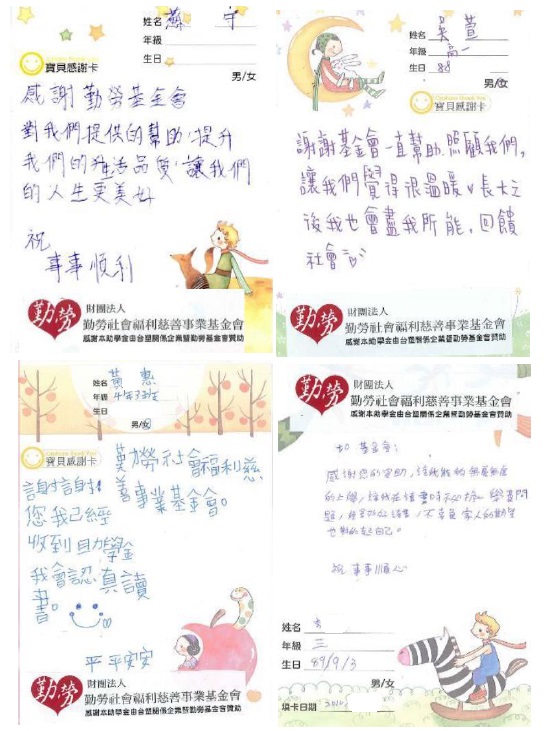 姓名 蘇 守
年級
生日
男/女
寶貝感謝卡
感謝勤勞基金會
對我們提供的幫助,提升
我們的生活品質,讓我們
的人生更美好
祝
事事順利
勤勞
財團法人
勤勞社會福利慈善事業基金會
感謝本助學金由台塑關係企業暨勤勞基金會贊助
姓名 吳 萱
年級 高一
生日 88
男/女
寶貝感謝卡
謝謝基金會一直幫助.照顧我們,
讓我們覺得很溫暖♥長大之
後我也會盡我所能,回饋
社會
勤勞
財團法人
勤勞社會福利慈善事業基金會
感謝本助學金由台塑關係企業暨勤勞基金會贊助
姓名 黃 惠
年級 4年3班
生日
男/女
寶貝感謝卡
勤勞社會福利慈
善事業基金會。
謝謝!
您我已經
收到助學金
我會認真讀
書。
平平安安
勤勞
財團法人
勤勞社會福利慈善事業基金會
感謝本助學金由台塑關係企業暨勤勞基金會贊助
勤勞
財團法人
勤勞社會福利慈善事業基金會
感謝本助學金由台塑關係企業暨勤勞基金會贊助
基金會:
感謝您的定助,給我能夠無憂無慮
的上學,
題,
也對的起自己。
祝 事事順心
姓名
年級 三
生日 89/9/3
男/女
填卡日期 2010.